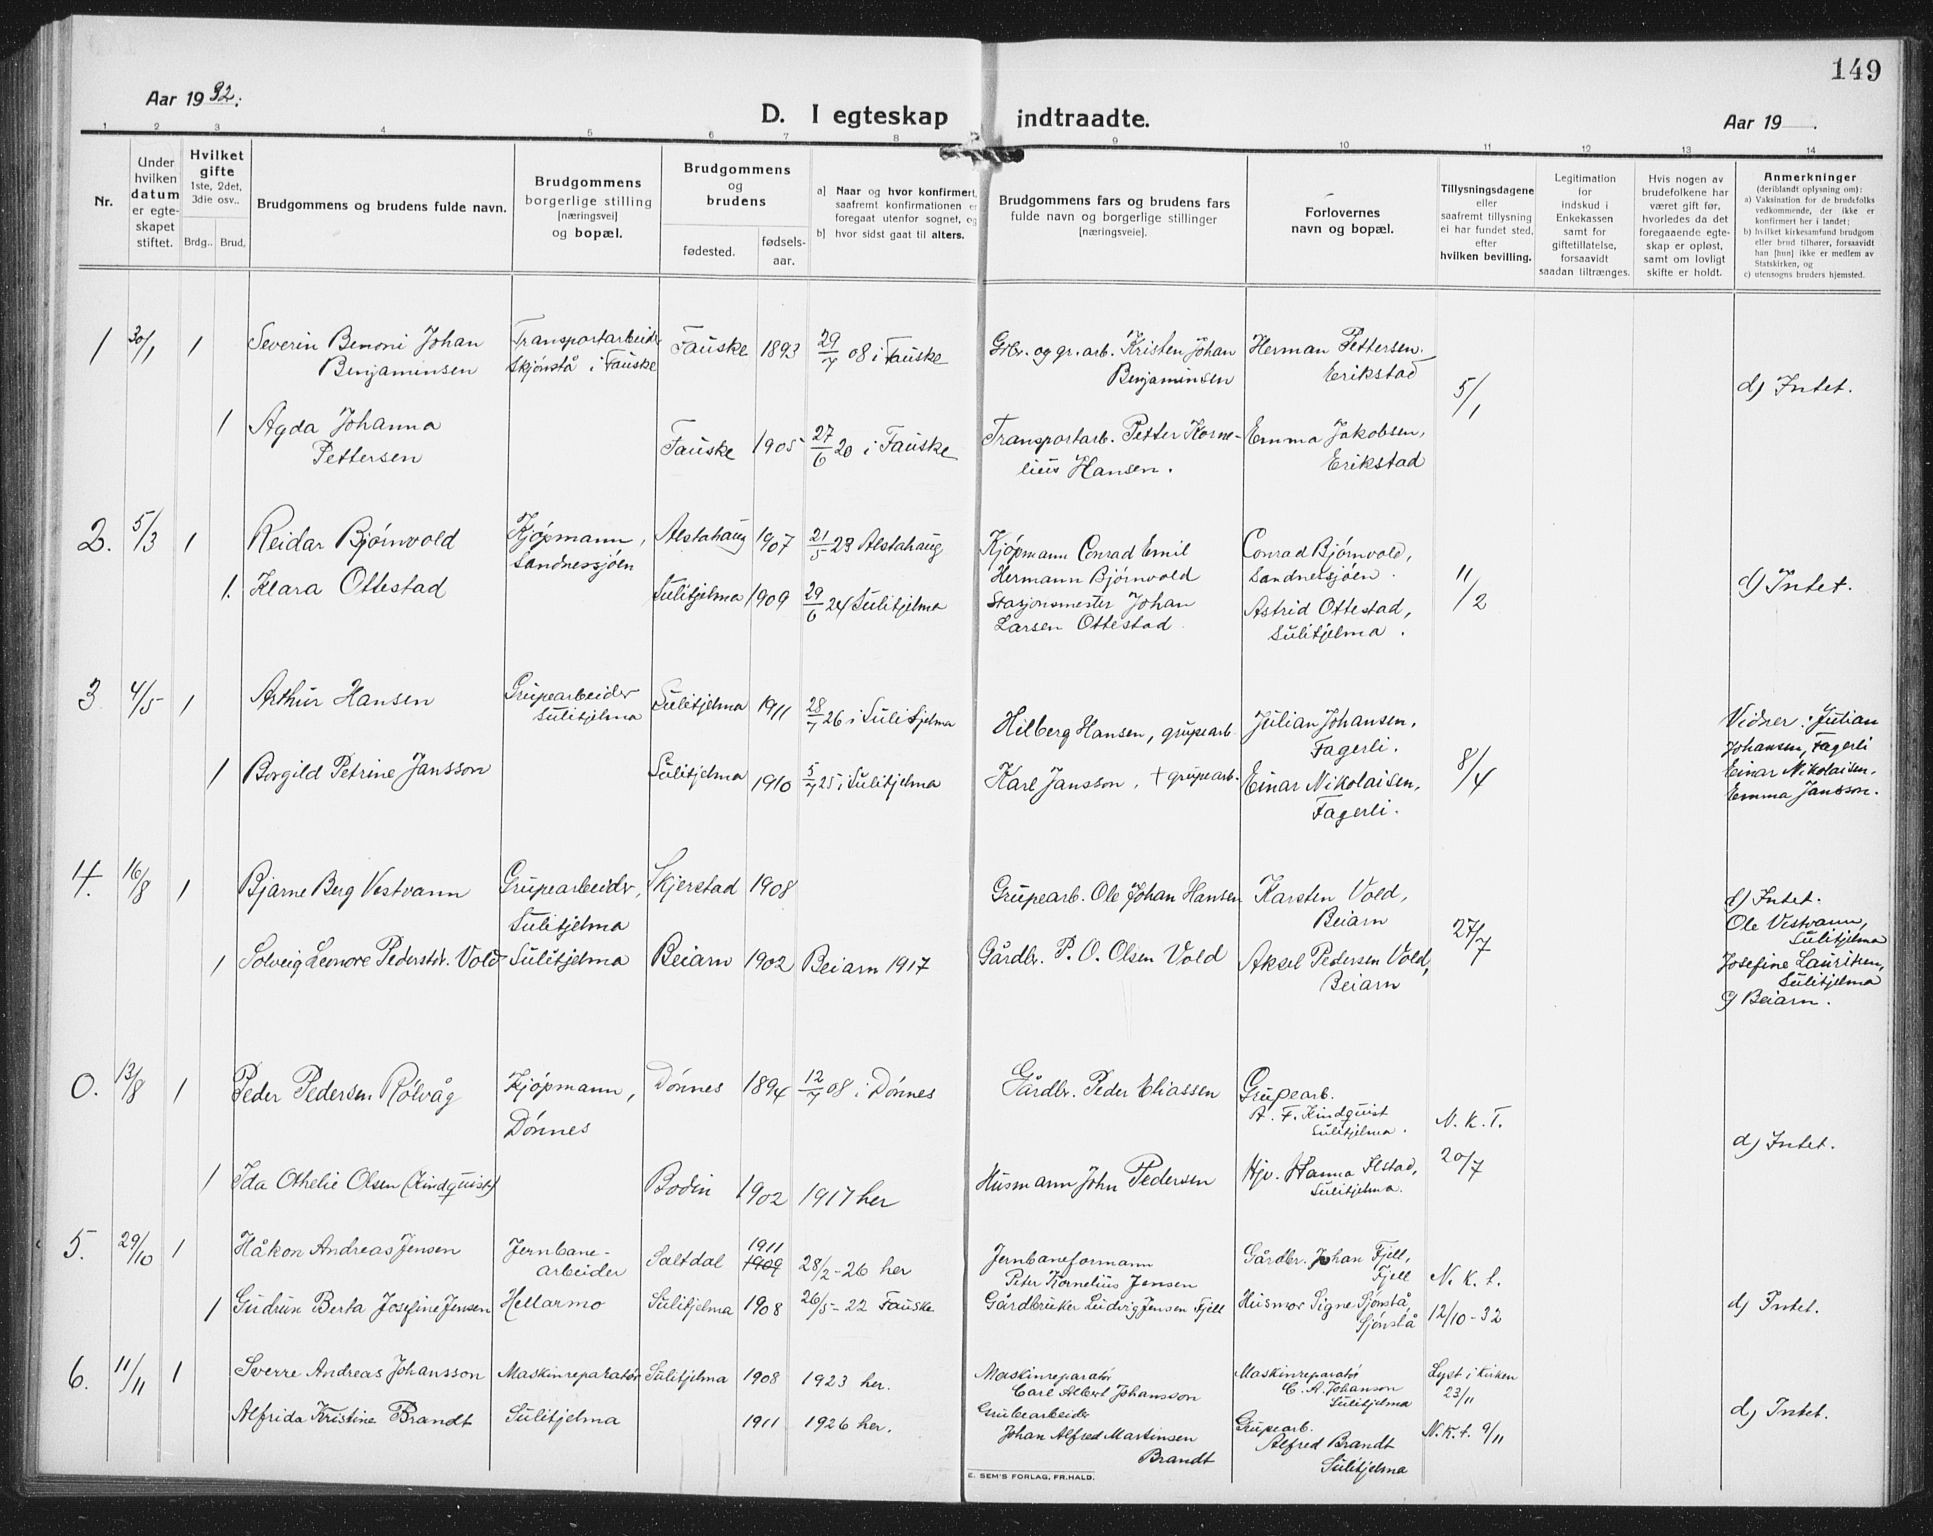 149
Aar 1932.
D. I egteskap indtraadte.
Aar 19 .
1 2 3 4 5 6 7 8 9 10 11 12 13 14
Nr.
Under
hvilken
datum
er egte-
skapet
stiftet.
Hvilket
gifte
1ste, 2det,
3die osv..
Brdg.. Brud.
Brudgommens og brudens fulde navn.
Brudgommens
borgerlige stilling
[næringsvei]
og bopæl.
Brudgommens
og
brudens
fødested.
fødsels-
aar.
a] Naar og hvor konfirmert,
saafremt konfirmationen er
foregaat utenfor sognet, og
b] hvor sidst gaat til alters.
Brudgommens fars og brudens fars
fulde navn og borgerlige stillinger
[næringsveie].
Forlovernes
navn og bopæl.
Tillysningsdagene
eller
saafremt tillysning
ei har fundet sted,
efter
hvilken bevilling.
Legitimation
for
indskud i
Enkekassen
samt for
giftetillatelse,
forsaavidt
saadan tiltrænges.
Hvis nogen av
brudefolkene har
været gift før,
hvorledes da det
foregaaende egte-
skap er opløst,
samt om lovligt
skifte er holdt.
Anmerkninger
(deriblandt oplysning om):
a) Vaksination for de brudefolks
vedkommende, der ikke er
konfirmert her i landet;
b) hvilket kirkesamfund brudgom
eller brud tilhører, forsaavidt
han [hun] ikke er medlem av
Statskirken, og
c) utensogns bruders hjemsted.
1 30/1 1 Severin Benoni Johan
Benjaminsen
Transportarbeider
Skjønstå i Fauske
Fauske 1893 29/7 08 i Fauske
Grbr. og gr.arb. Kristen Johan
Benjaminsen
Herman Pettersen.
Erikstad
5/1
d) Intet.
1 Agda Johanna
Pettersen
Fauske 1905 27/6 20 i Fauske
Transportarb. Petter Korne-
lius Hansen.
Emma Jakobsen,
Erikstad
2. 5/3 1 Reidar Bjørnvold
Kjøpmann,
Sandnessjøen
Alstahaug 1907 21/5 23 Alstahaug
Kjøpmann Conrad Emil
Hermann Bjørnvold
Conrad Bjørnvold,
Sandnessjøen.
11/2
d) Intet.
1. Klara Ottestad
Sulitjelma 1909 29/6 24 Sulitjelma
Stasjonsmester Johan
Larsen Ottestad
Astrid Ottestad,
Sulitjelma.
3 4/5 1 Arthur Hansen
Grupearbeider
Sulitjelma
Sulitjelma 1911 28/7 26 i Sulitjelma
Hilberg Hansen, grupearb.
Julian Johansen,
Fagerli.
8/4
Vidner: Julian
Johansen, Fagerli
Einar Nikolaisen,
Emma Jansson.
1 Borgild Petrine Jansson
Sulitjelma 1910 5/7 25 i Sulitjelma
Karl Jansson, + grupearb.
Einar Nikolaisen,
Fagerli.
4. 16/8 1 Bjarne Berg Vestvann
Grupearbeider,
Sulitjelma
Skjerstad 1908
Grupearb. Ole Johan Hansen
Karsten Vold,
Beiarn
27/7
d) Intet.
Ole Vestvann,
Sulitjelma
Josefine Lauritsen,
Sulitjelma
c) Beiarn.
1 Solveig Leonore Pedersdt. Vold
Sulitjelma Beiarn 1902 Beiarn 1917
Gårdbr. P. O. Olsen Vold
Aksel Pedersen Vold,
Beiarn
0. 13/8 1 Peder Pedersen Rølvåg
Kjøpmann,
Dønnes
Dønnes 1894 12/7 08 i Dønnes
Gårdbr. Peder Eliassen
Grupearb.
A. F. Kindquist
Sulitjelma.
N. K. T.
20/7
d) Intet.
1 Ida Othelie Olsen (Kindquist)
Bodin 1902 1917 her
Husmann John Pedersen
Hjv. Hanna Ilstad,
Sulitjelma.
5. 29/10 1 Håkon Andreas Jensen
Jernbane-
arbeider
Saltdal 1911
1909
28/2-26 her
Jernbaneformann
Peter Kornelius Jensen
Gårdbr. Johan Fjell,
Fjell
N. K. t.
12/10-32
d) Intet.
1 Gudrun Berta Josefine Jensen
Hellarmo Sulitjelma 1908 26/5-22 Fauske
Gårdbruker Ludvig Jensen Fjell
Husmor Signe Sjønstå,
Sjønstå
6. 11/11 1 Sverre Andreas Johansson
Maskinreparatør Sulitjelma 1908 1923 her.
Maskinreparatør
Carl Albert Johansson
Maskinreparatør
C. A. Johanson
Sulitjelma
Lyst i Kirken
23/11
Alfrida Kristine Brandt
Sulitjelma 1911 1926 her.
Grubearbeider
Johan Alfred Martinsen
Brandt
Grupearb.
Alfred Brandt
Sulitjelma
N. K. t. 9/11
d) Intet.
E. SEM'S FORLAG, FR.HALD.